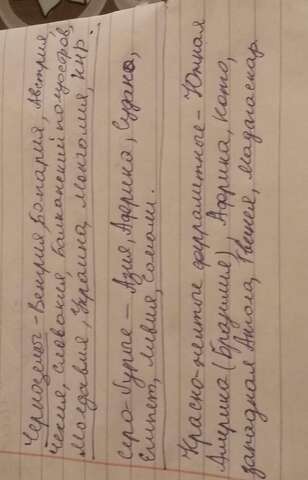 Черноземы - Венгрия, Болгария, Австрия,
Чехия, Словакия, Балканский полуостров,
Молдавия, Украина, Монголия, КНР.
Серо-бурые - Азия, Африка, Судан,
Египет, Ливия, Сомали.
Красно-желтые ферралитные - Южная
Америка (Бразилия), Африка, Конго,
западная Ангола, Гвинея, Мадагаскар